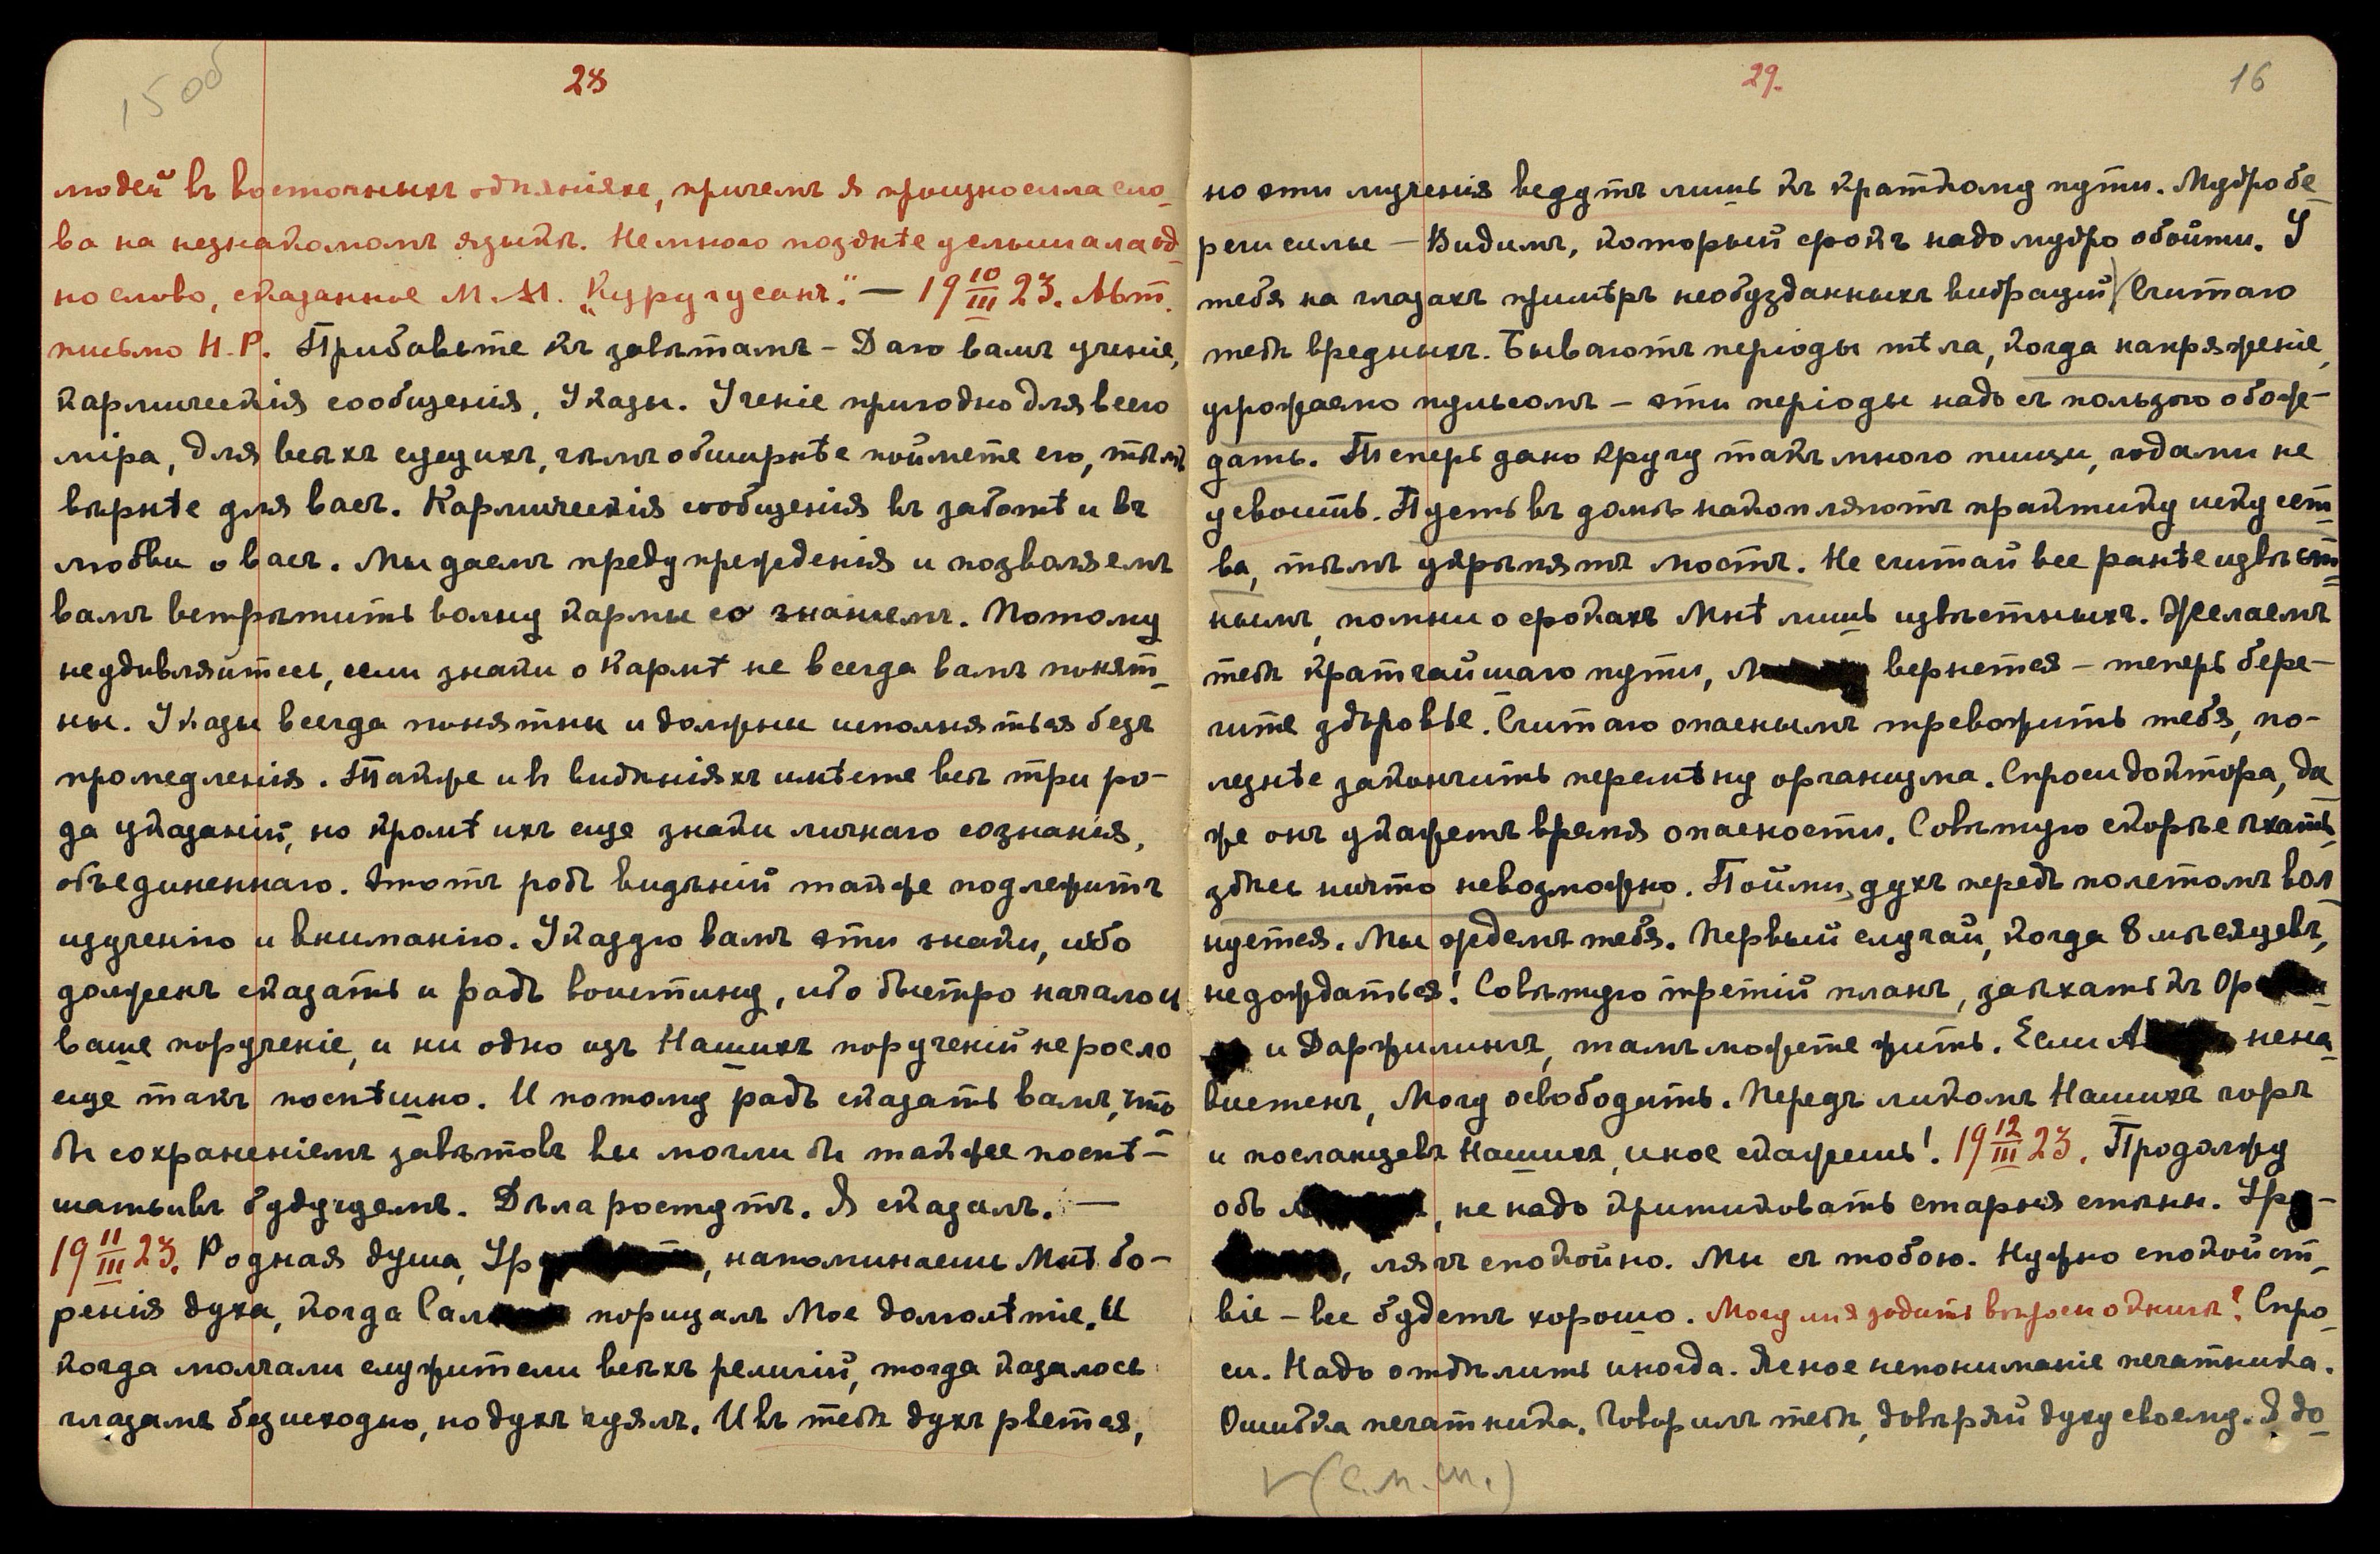 15 об
28
людей въ восточныхъ одѣянiяхъ, причемъ я произносила сло-
ва на незнакомомъ языкѣ. Немного позднѣе услышала од-
но слово, сказанное М.М. „Куругусанъ." — 19 10/III 23. Авт.
письмо Н.Р. Прибавьте къ завѣтамъ – Даю вамъ ученiе,
кармическiя сообщенiя, Указы. Ученiе пригодно для всего
мiра, для всѣхъ сущихъ, чѣмъ обширнѣе поймете его, тѣмъ
вѣрнѣе для васъ. Кармическiя сообщенiя въ заботѣ и въ
любви о васъ. Мы даемъ предупрежденiя и позволяемъ
вамъ встрѣтить волну кармы со знанiемъ. Потому
неудивляйтесь, если знаки о кармѣ не всегда вамъ понят-
ны. Указы всегда понятны и должны исполняться безъ
промедленiя. Также и въ видѣнiяхъ имѣете всѣ три ро-
да указанiй, но кромѣ ихъ еще знаки личнаго сознанiя,
объединеннаго. Этотъ родъ видѣнiй также подлежитъ
изученiю и вниманiю. Указую вамъ эти знаки, ибо
долженъ сказать и радъ воистину, ибо быстро началось
ваше порученiе, и ни одно изъ Нашихъ порученiй не росло
еще такъ поспѣшно. И потому радъ сказать вамъ, что
бы сохраненiемъ завѣтовъ вы могли бы также поспѣ-
шать и въ будущемъ. Дѣла ростутъ. Я сказалъ. —
19 11/III 23. Родная душа, Уру, напоминаешь Мнѣ бо-
ренiя духа, когда Сал порицалъ Мое долголѣтiе. И
когда молчали служители всѣхъ религiй, тогда казалось
глазамъ безисходно, но духъ чуялъ. И въ тебѣ духъ рвется,
29.
16
но эти мученiя ведутъ лишь къ краткому пути. Мудро бе-
реги силы – Видимъ, который срокъ надо мудро обойти. У
тебя на глазахъ примѣръ необузданныхъ вибрацiй) Считаю
тебѣ вредныхъ. Бываютъ перiоды тѣла, когда напряженiе
угрожаемо пульсомъ – эти перiоды надо съ пользою обож-
дать. Теперь дано кругу такъ много пищи, годами не
усвоить. Пусть въ домѣ накопляютъ практику искусст-
ва, тѣмъ укрѣпятъ мостъ. Не считай все ранѣе извѣст-
нымъ, помни о срокахъ Мнѣ лишь извѣстныхъ. Желаемъ
тебѣ кратчайшаго пути, вернется – теперь бере-
гите здоровье. Считаю опаснымъ тревожить тебя, по-
лезнѣе закончить перемѣну организма. Спроси доктора, да
же онъ укажетъ время опасности. Совѣтую скорѣе ѣхать
здѣсь ничто невозможно. Пойми, духъ передъ полетомъ вол
нуется. Мы ждемъ тебя. Первый случай, когда 8 мѣсяцевъ,
недождаться! Совѣтую третiй планъ, заѣхать къ Ор
и Даржилингъ, тамъ можете жить. Если А нена-
вистенъ, Могу освободить. Передъ ликомъ Нашихъ горъ
и посланцевъ Нашихъ, иное скажешь!. 19 12/III 23. Продолжу
объ, не надо критиковать старыя стѣны. Уру-
, лягъ спокойно. Мы съ тобою. Нужно спокойст-
вiе – все будетъ хорошо. Могу ли я задать вопросъ о книгѣ? Спро-
си. Надо отдѣлить иногда. Ясное непониманiе печатника.
Ошибка печатника. Говорилъ тебѣ, довѣряй духу своему. Я до-
V (с.м.м.)